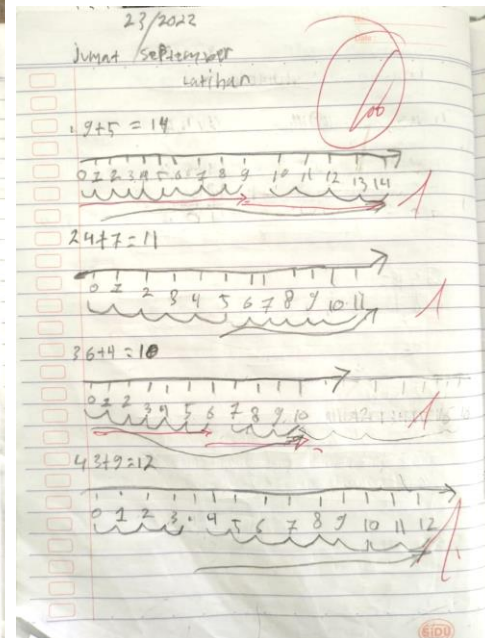 23/2022
Jumat / September
Latihan
100
1 9+5 = 14
0 1 2 3 4 5 6 7 8 9 10 11 12 13 14
2 4+7=11
0 1 2 3 4 5 6 7 8 9 10 11
3 6+4=10
0 1 2 3 4 5 6 7 8 9 10
4 3+9=12
0 1 2 3 4 5 6 7 8 9 10 11 12
SIDU